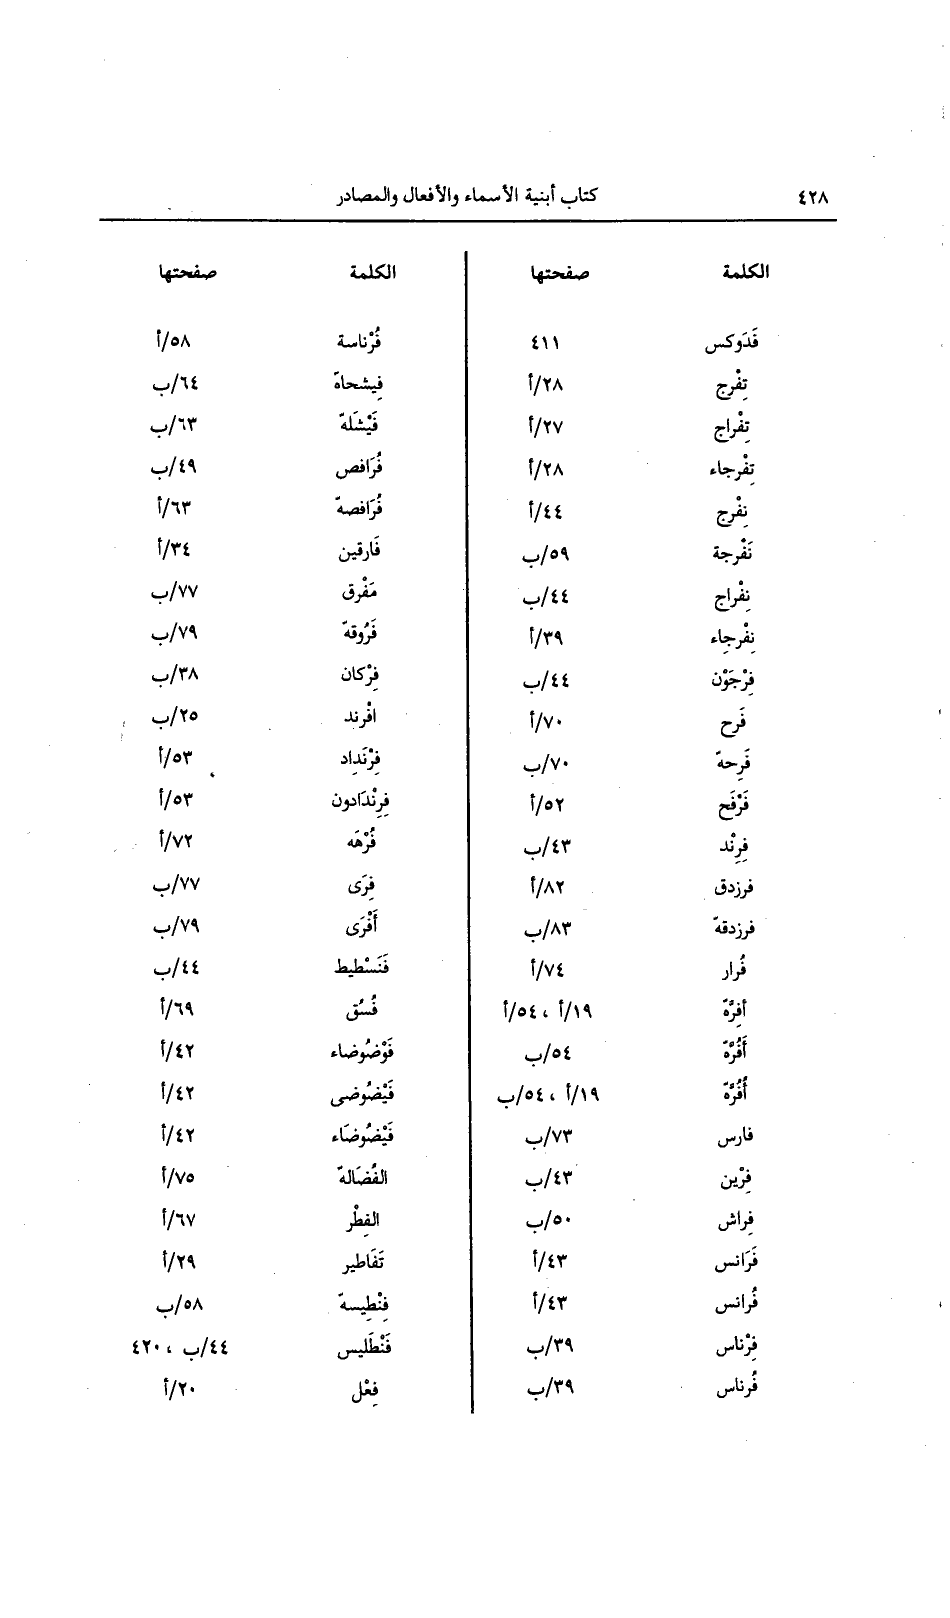 ٤٢٨ كتاب أبنية الأسماء والأفعال والمصادر
الكلمة صفحتها
فَدَوكس ٤١١
تِفْرج ٢٨/أ
تِفْراج ٢٧/أ
تِفْرجاء ٢٨/أ
نِفْرج ٤٤/أ
نَفْرجة ٥٩/ب
نِفْراج ٤٤/ب
نِفْرجاء ٣٩/أ
فِرْجَوْن ٤٤/ب
فَرح ٧٠/أ
فَرِحهّ ٧٠/ب
فَرْفَح ٥٢/أ
فِرِنْد ٤٣/ب
فرزدق ٨٢/أ
فرزدقهّ ٨٣/ب
فُرار ٧٤/أ
أفِرَّهّ ١٩/أ ، ٥٤/أ
أَفُرَّهّ ٥٤/ب
أُفُرَّهّ ١٩/أ ، ٥٤/ب
فارس ٧٣/ب
فِرْين ٤٣/ب
فِراش ٥٠/ب
فَرَانس ٤٣/أ
فُرانس ٤٣/أ
فِرْناس ٣٩/ب
فُرناس ٣٩/ب
الكلمة صفحتها
فُرْناسة ٥٨/أ
فِيشحاهّ ٦٤/ب
فَيْشَلهّ ٦٣/ب
فُرَافص ٤٩/ب
فُرَافصهّ ٦٣/أ
فَارقين ٣٤/أ
مَفْرق ٧٧/ب
فَرُوقهّ ٧٩/ب
فِرْكان ٣٨/ب
افْرند ٢٥/ب
فِرْنَداد ٥٣/أ
فِرِنْدَادون ٥٣/أ
فُرْهَه ٧٢/أ
فِرَى ٧٧/ب
أَفْرَى ٧٩/ب
فَنَسْطيط ٤٤/ب
فُسُق ٦٩/أ
فَوْضُوضاء ٤٢/أ
فَيْضُوضى ٤٢/أ
فَيْضُوضَاء ٤٢/أ
الفُضَالهّ ٧٥/أ
الفِطْر ٦٧/أ
تَفَاطير ٢٩/أ
فِنْطِيسهّ ٥٨/ب
فَنْطَليس ٤٤/ب ، ٤٢٠
فِعْل ٢٠/أ